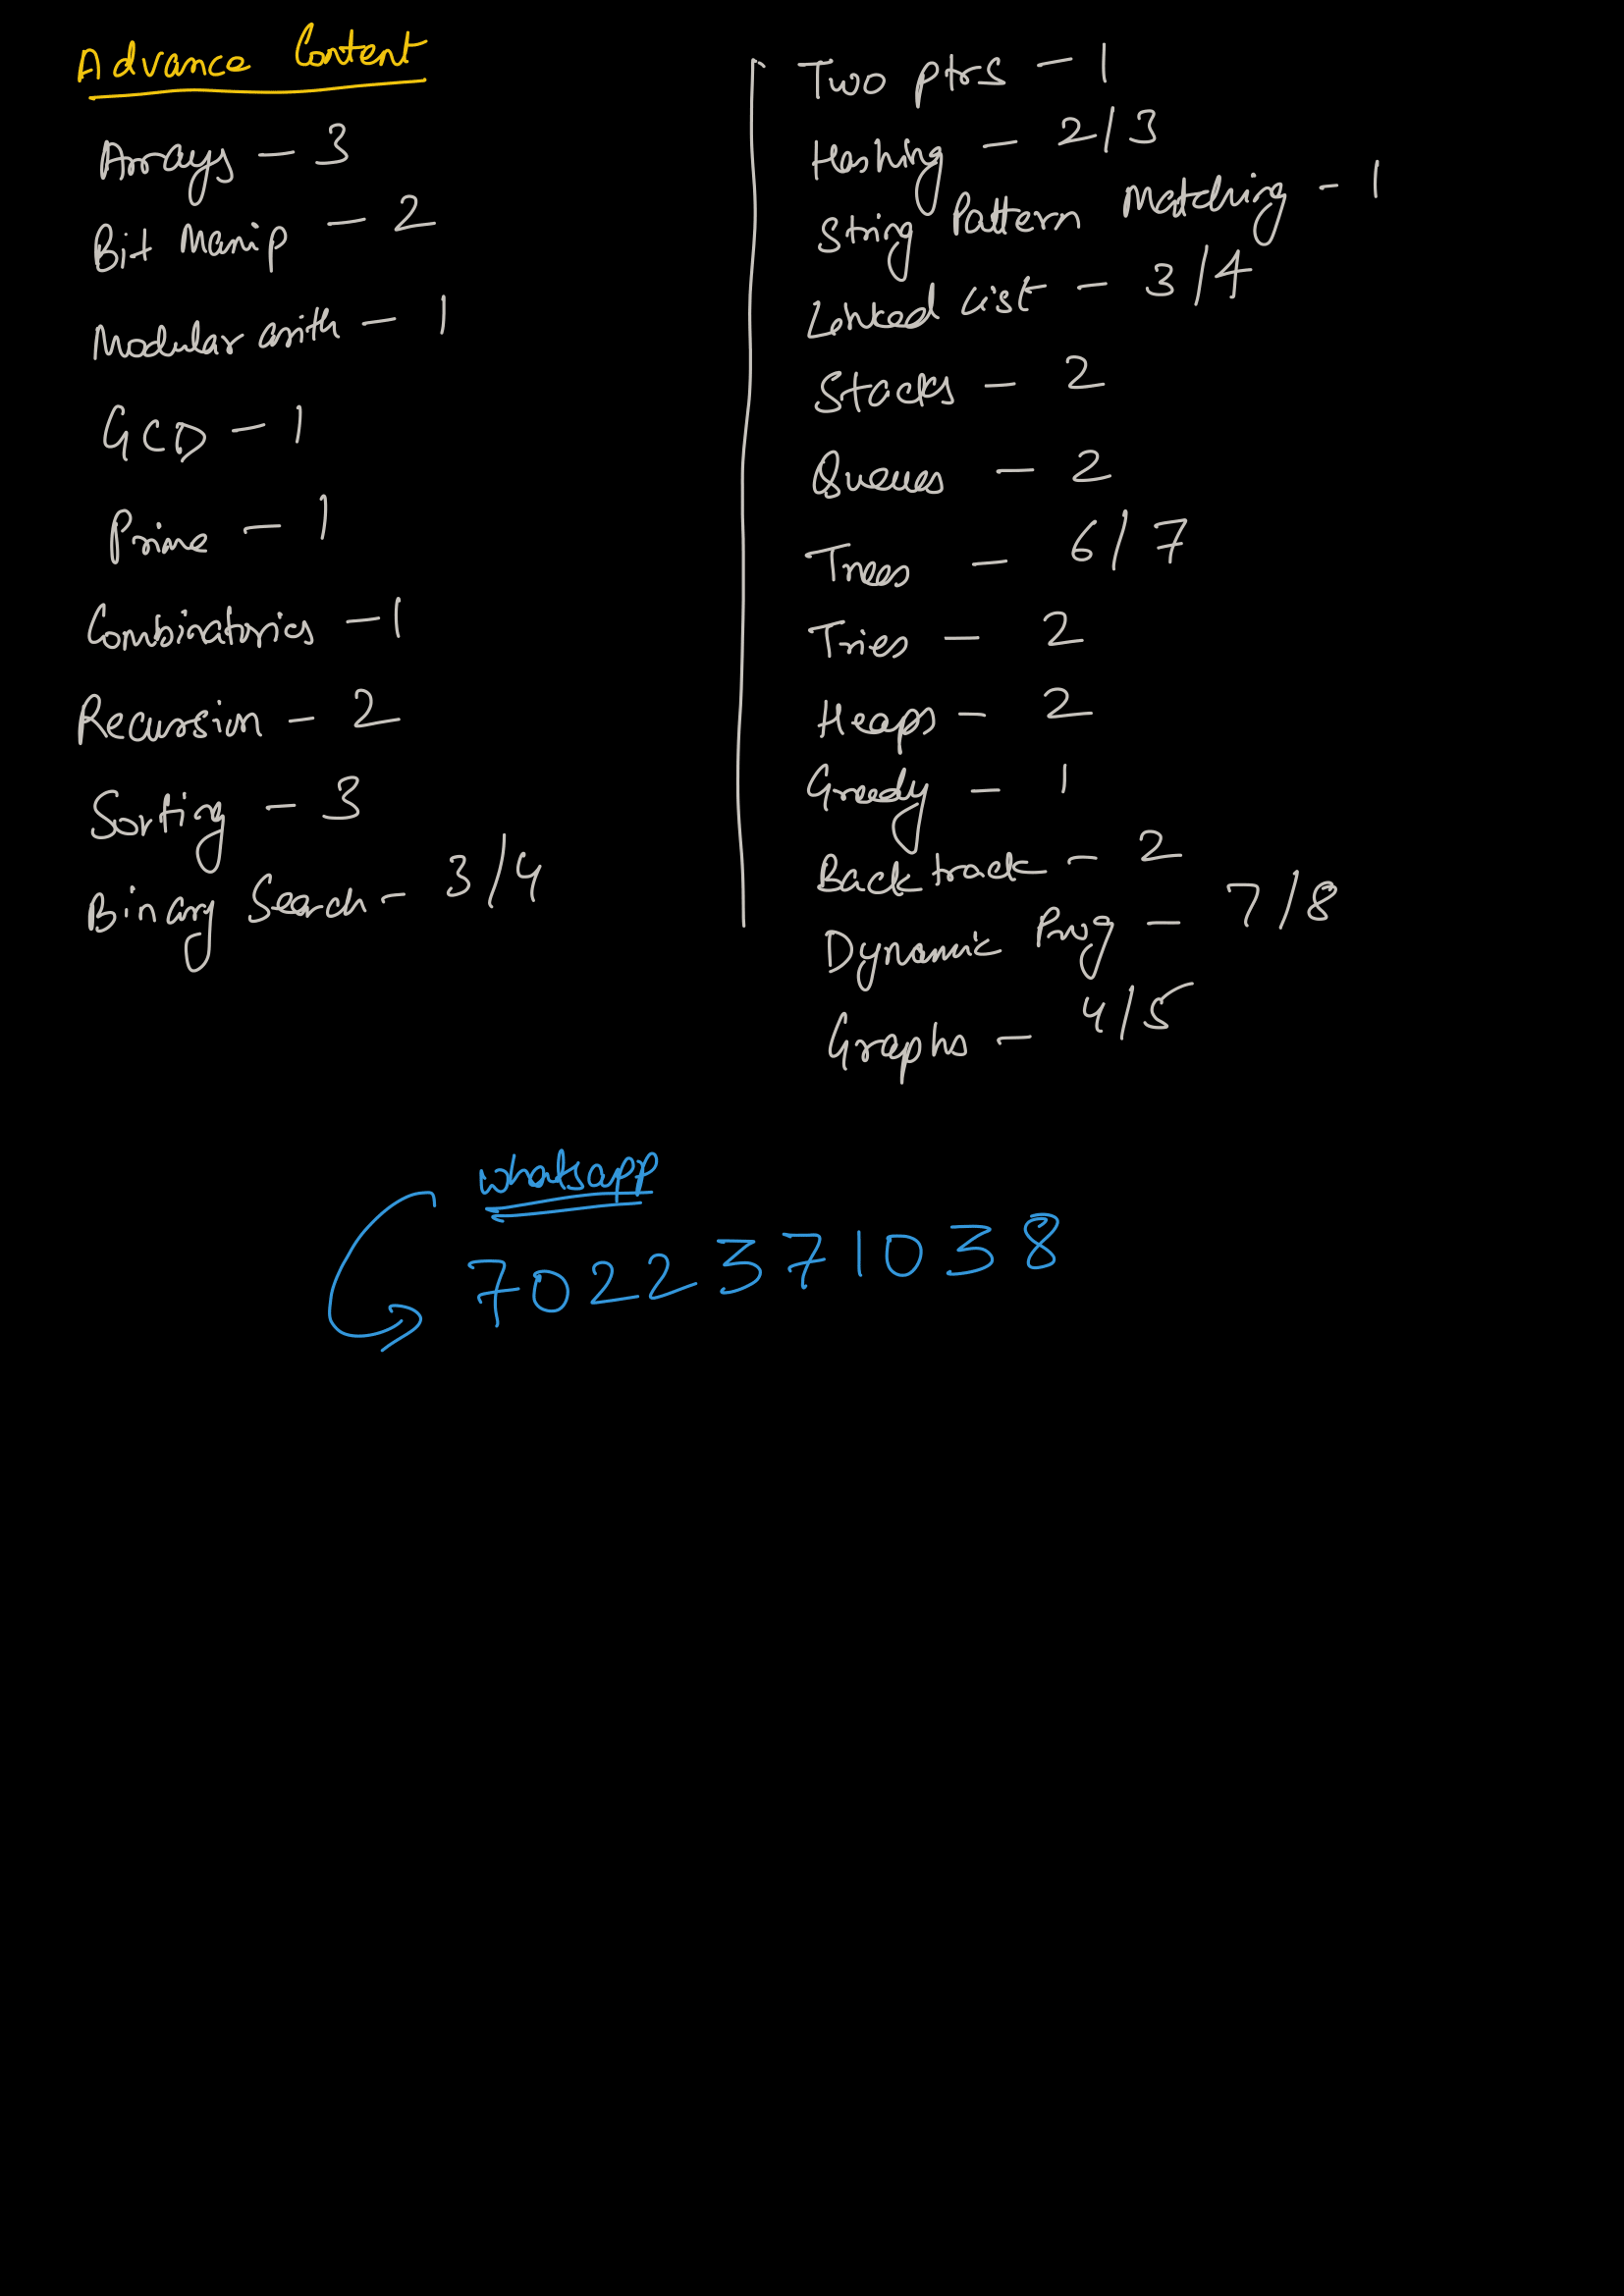 Advance Content
Arrays - 3
Bit Manip - 2
Modular arith - 1
GCD - 1
Prime - 1
Combinatorics - 1
Recursion - 2
Sorting - 3
Binary Search - 3/4
Two ptrs - 1
Hashing - 2/3
String Pattern Matching - 1
Linked List - 3/4
Stacks - 2
Queues - 2
Trees - 6/7
Tries - 2
Heaps - 2
Greedy - 1
Back track - 2
Dynamic Prog - 7/8
Graphs - 4/5
whatsapp
7022371038